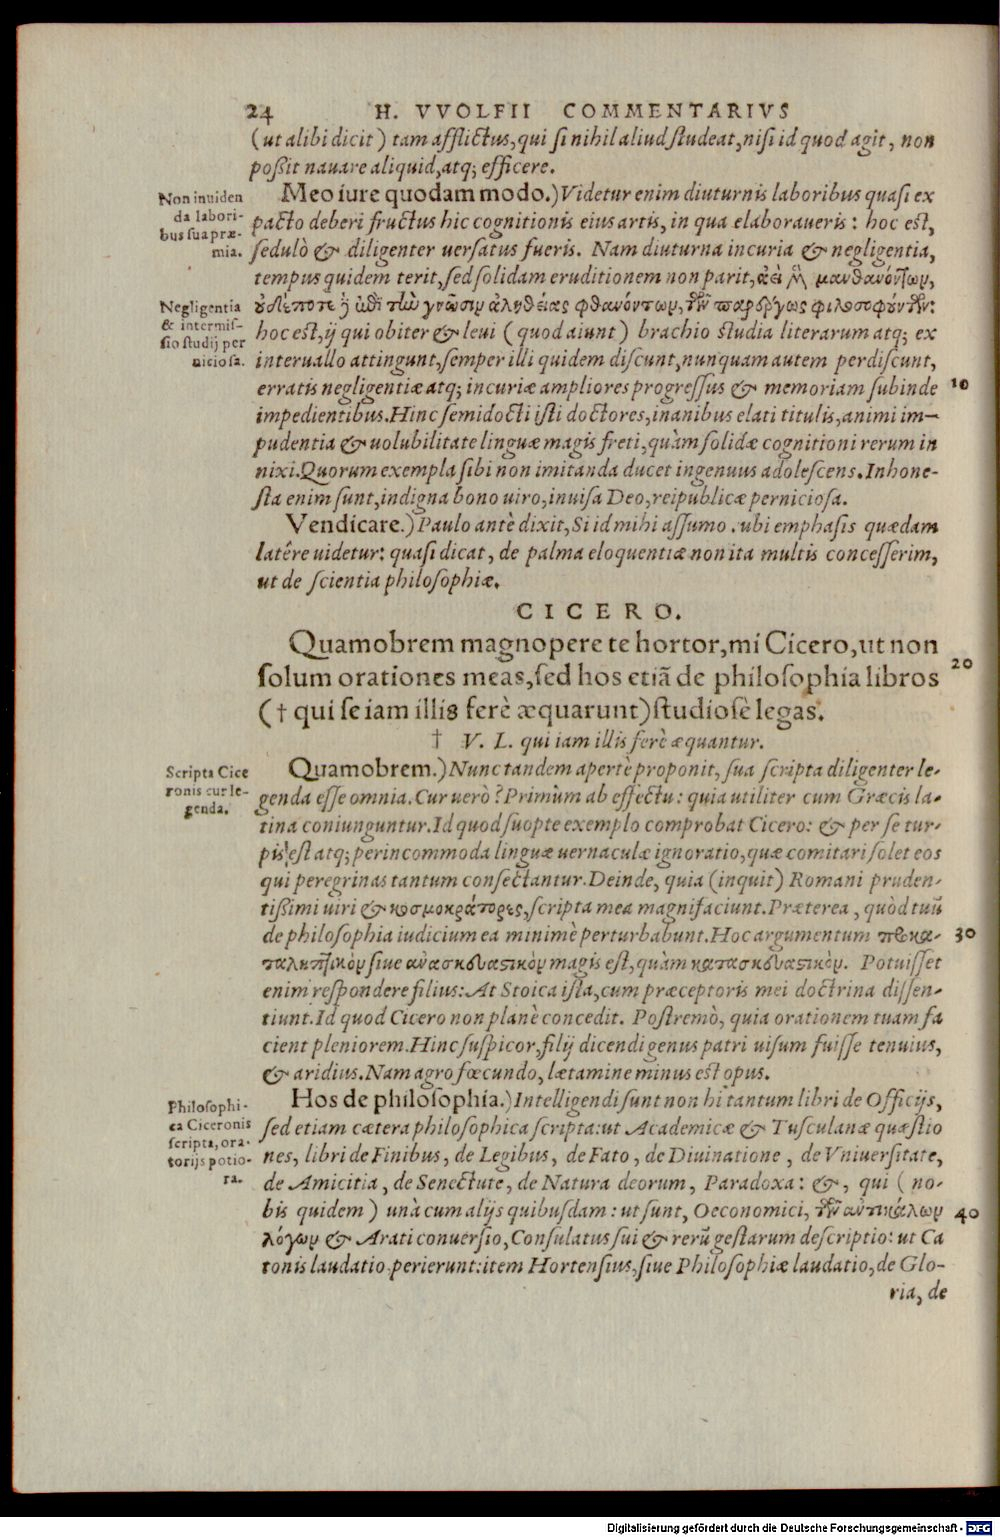 24 H. VVOLFII COMMENTARIVS
(ut alibi dicit) tam afflictus, qui si nihil aliud studeat, nisi id quod agit, non
poßit nauare aliquid, atq; efficere.
Non inuiden
da labori-
bus sua præ-
mia.
Meo iure quodammodo.) Videtur enim diuturnis laboribus quasi ex
pacto deberi fructus hic cognitionis eius artis, in qua elaboraueris: hoc est,
sedulò & diligenter uersatus fueris. Nam diuturna incuria & negligentia,
tempus quidem terit, sed solidam eruditionem non parit, ἀεὶ μὲν μανθανόντων,
Negligentia
& intermis-
sio studij per
niciosa.
οὐδέποτε δὲ ἐπὶ τὴν γνῶσιν ἀληθείας φθανόντων, τῶν παρέργως φιλοσοφούντων:
hoc est, ij qui obiter & leui (quod aiunt) brachio studia literarum atq; ex
interuallo attingunt, semper illi quidem discunt, nunquam autem perdiscunt,
erratis negligentiæ atq; incuriæ ampliores progressus & memoriam subinde 10
impedientibus. Hinc semidocti isti doctores, inanibus elati titulis, animi im-
pudentia & uolubilitate linguæ magis freti, quàm solidæ cognitioni rerum in
nixi. Quorum exempla sibi non imitanda ducet ingenuus adolescens. Inhone-
sta enim sunt, indigna bono uiro, inuisa Deo, reipublicæ perniciosa.
Vendicare.) Paulo antè dixit, Si id mihi assumo. ubi emphasis quædam
latêre uidetur: quasi dicat, de palma eloquentiæ non ita multis concesserim,
ut de scientia philosophiæ.
CICERO.
Quamobrem magnopere te hortor, mi Cicero, ut non
solum orationes meas, sed hos etiã de philosophia libros 20
(† qui se iam illis ferè æquarunt) studiosè legas.
† V. L. qui iam illis ferè æquantur.
Scripta Cice
ronis cur le-
genda.
Quamobrem.) Nunc tandem apertè proponit, sua scripta diligenter le-
genda esse omnia. Cur uerò? Primùm ab effectu: quia utiliter cum Græcis la-
tina coniunguntur. Id quod suopte exemplo comprobat Cicero: & per se tur-
pis est atq; perincommoda linguæ uernaculæ ignoratio, quæ comitari solet eos
qui peregrinas tantum consectantur. Deinde, quia (inquit) Romani pruden-
tißimi uiri & κοσμοκράτορες, scripta mea magnifaciunt. Præterea, quòd tuũ
de philosophia iudicium ea minimè perturbabunt. Hoc argumentum προκα- 30
ταληπτικὸν siue ἀνασκευαστικὸν magis est, quàm κατασκευαστικὸν. Potuisset
enim respondere filius: At Stoica ista, cum præceptoris mei doctrina dissen-
tiunt. Id quod Cicero non planè concedit. Postremò, quia orationem tuam fa
cient pleniorem. Hinc suspicor, filij dicendi genus patri uisum fuisse tenuius,
& aridius. Nam agro fœcundo, lætamine minus est opus.
Philosophi-
ca Ciceronis
scripta, ora-
torijs potio-
ra.
Hos de philosophia.) Intelligendi sunt non hi tantum libri de Officijs,
sed etiam cætera philosophica scripta: ut Academicæ & Tusculanæ quæstio
nes, libri de Finibus, de Legibus, de Fato, de Diuinatione, de Vniuersitate,
de Amicitia, de Senectute, de Natura deorum, Paradoxa: &, qui (no-
bis quidem) unà cum alijs quibusdam: ut sunt, Oeconomici, τῶν ἀντικάλων 40
λόγων & Arati conuersio, Consulatus sui & rerũ gestarum descriptio: ut Ca
tonis laudatio perierunt: item Hortensius, siue Philosophiæ laudatio, de Glo-
ria, de
Digitalisierung gefördert durch die Deutsche Forschungsgemeinschaft - DFG